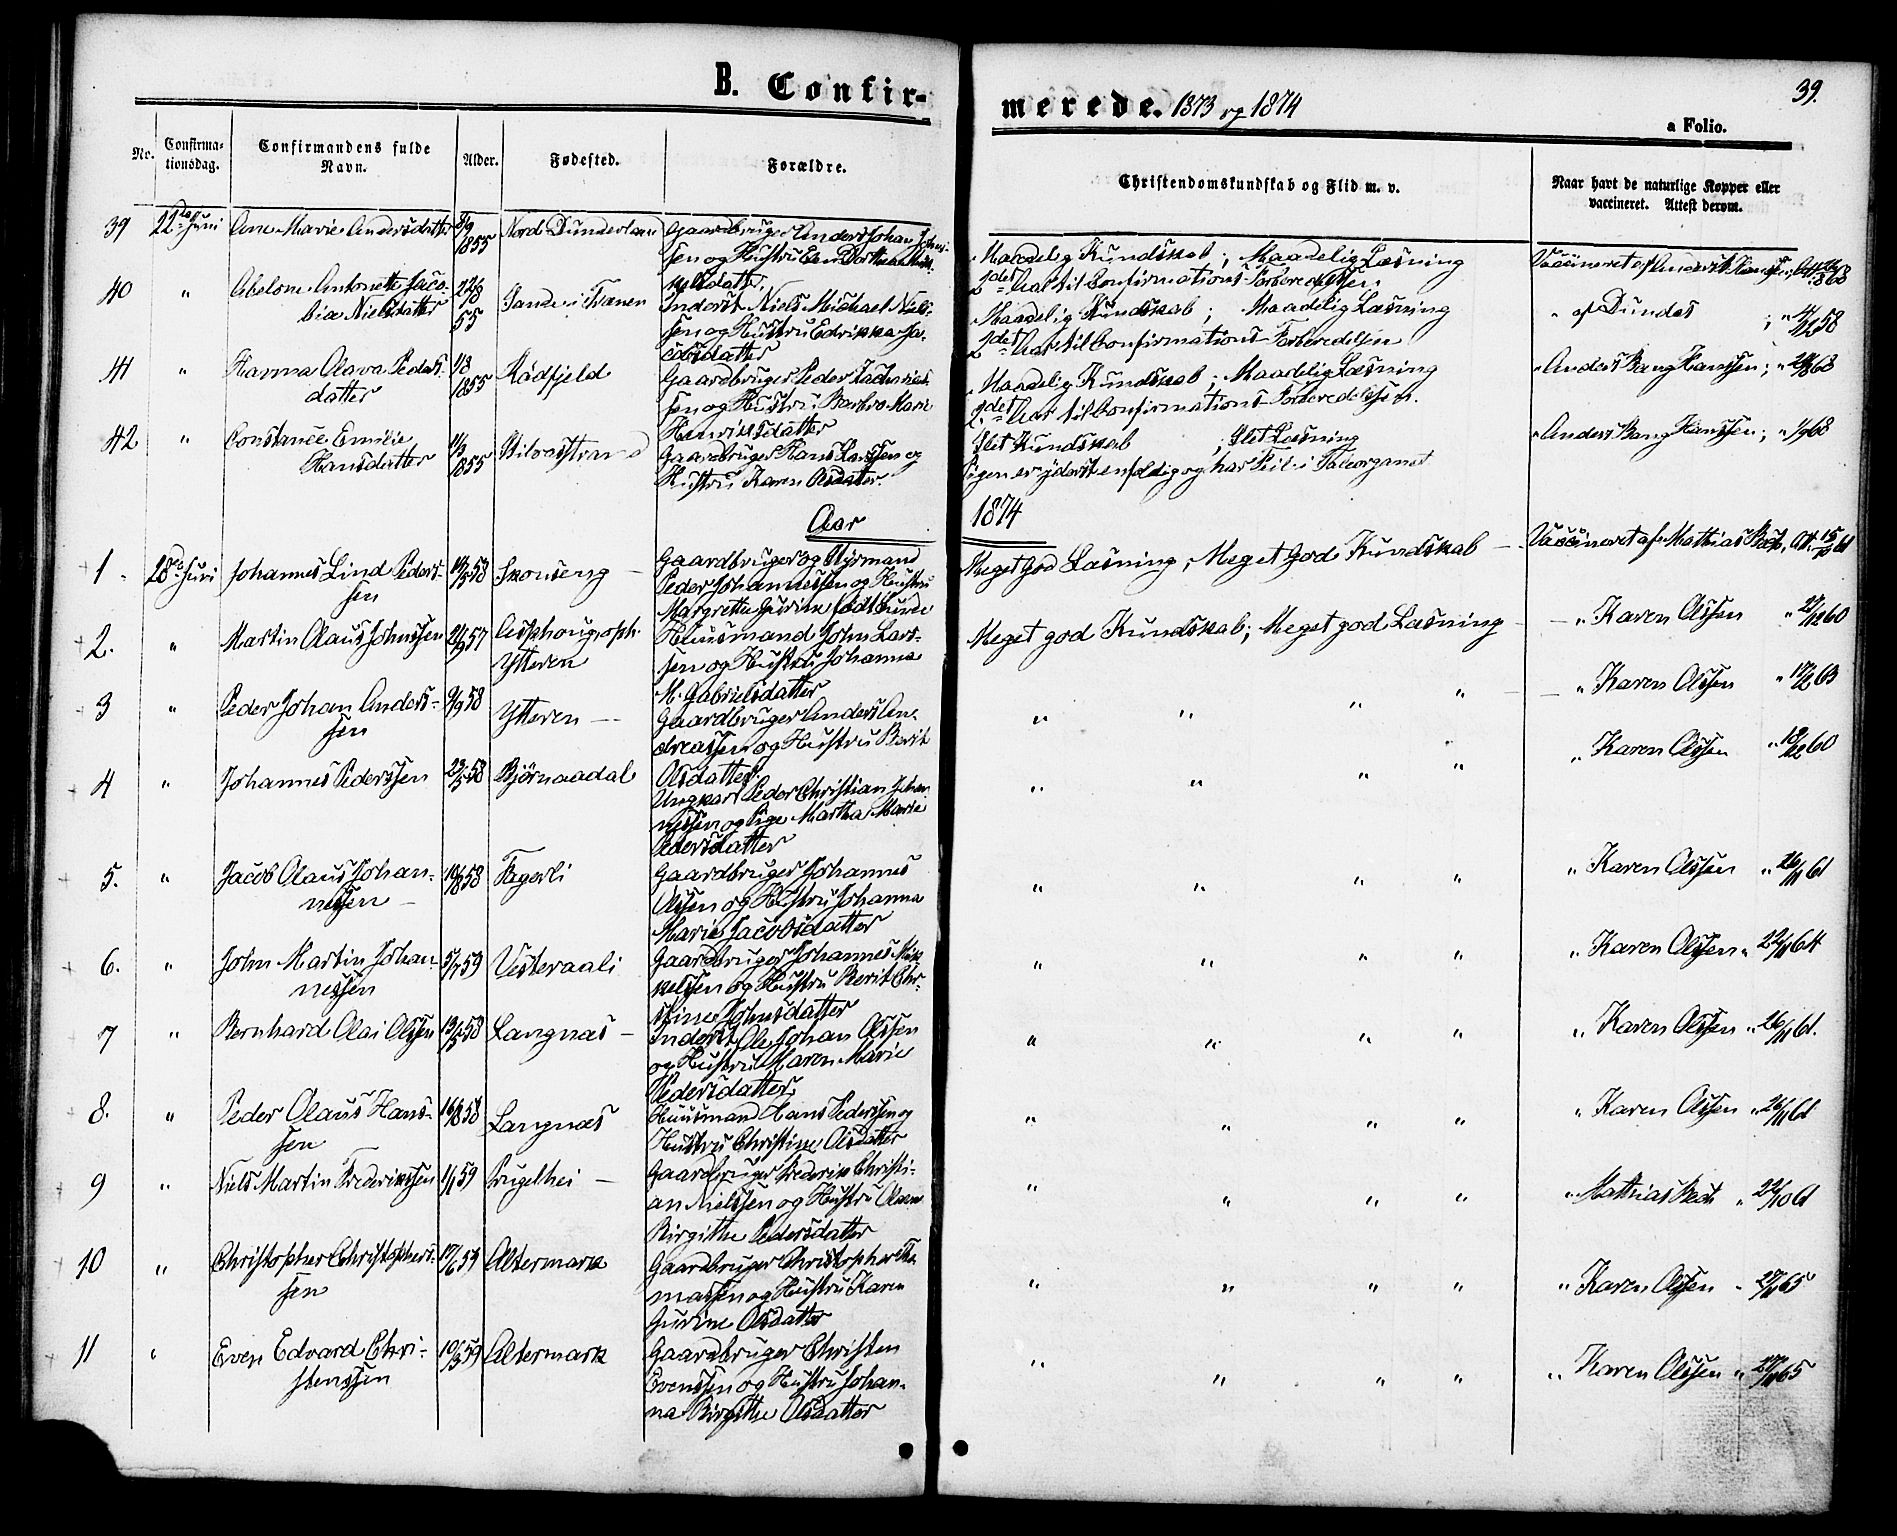 B. Confir-
merede. 1873 og 1874
39.
a Folio.
No.
Confirma-
tionsdag.
Confirmandens fulde
Navn.
Alder.
Fødested.
Forældre.
Christendomskundskab og Flid m. v.
Naar havt de naturlige Kopper eller
vaccineret. Attest derom.
39 22de Juni Ane Marie Andersdatter 8/9 1855 Nord-Dunderland
Gaardbruger Anders Johan Johns-
sen og Hustru
Maadelig Kundskab; Maadelig Læsning
2det Aar til Confirmations-Forberedelsen.
Vaccineret af
40 " Abelone Antonette Jaco-
bia Nielsdatter 55
Sande i Trænen
Inderst Niels Michael Niels-
sen og Hustru Edrikka Ja-
cobsdatter
Maadelig Kundskab; Maadelig Læsning
2det Aar til Confirmations-Forberedelsen
" af Dundas ; "
41 " Hanna Olava Peders-
datter 1/8 1855
Rødfjeld
Gaardbruger Peder Zacharias-
sen og Hustru Barbro Marie
Henriksdatter
Maadelig Kundskab; Maadelig Læsning
2det Aar til Confirmations-Forberedelsen.
" Anders Bang Hanssen; "
42 " Constance Emilie
Hansdatter 11/3 1855
Stilvasstrand
Gaardbruger Hans Larssen og
Hustru Karen Olsdatter.
Slet Kundskab ; Slet Læsning
Pigen er yderst enfoldig og har Feil i Taleorganet
" Anders Bang Hanssen; " 1/9 68
Aar
1874
1 28de Juni Johannes Lind Peders-
sen
Skonseng
Gaardbruger og Styrmand
Peder Johannessen og Hustru
Margrethe Gurine født Lund
Meget god Læsning, Meget god Kundskab
Vaccineret af Mathias Bech, Att. 61
2. " Martin Olaus Johnssen 57
Ytteren
Huusmand John Lars-
sen og Hustru Johanna
M. Gabrielsdatter
Meget god Kundskab; Meget god Læsning
" Karen Olssen " 27/12 60
3 " Peder Johan Anders-
sen 9/9 58
Ytteren
Gaardbruger Anders An-
dreassen og Hustru Berit
Olsdatter.
" " " "
" Karen Olssen " 63
4 " Johannes Pederssen 23/5 58 Bjørnaadal
Ungkarl Peder Christian Johan-
nessen og Pige Martha Marie
Pedersdatter
" " " "
" Karen Olssen " 60
5. " Jacob Olaus Johan-
nessen 10/8 58
Fagerli
Gaardbruger Johannes
Olssen og Hustru Johanna
Marie Jacobsdatter
" " " "
" Karen Olssen " 26/11 61
6. " John Martin Johan-
nessen 5/7 59
Vesteraali
Gaardbruger Johannes Mik-
kelssen og Hustru Berit Chri-
stine Johnsdatter
" " " "
" Karen Olssen " 22/11 64
7 " Bernhard Olai Olssen 13/5 58 Langnæs
Inderst Ole Johan Olssen
og Hustru Maren Marie
Pedersdatter.
" " " "
" Karen Olssen " 26/11 61.
8. " Peder Olaus Hans-
sen 16/8 58
Langnæs
Huusmand Hans Pederssen og
Hustru Christine Olsdatter
" " " "
" Karen Olssen " 26/11 61
9 " Niels Martin Frederikssen 59
Gaardbruger Frederik Christi-
an Nielssen og Hustru
Birgithe Pedersdatter
" " " "
" Mathias Bech " 22/10 61
10 " Christopher Christophers-
sen 17/6 59 Altermark
Gaardbruger Christopher Tho-
massen og Hustru Karen
Gurine Olsdatter
" " " "
" Karen Olssen " 27/11 65
11 " Even Edvard Chri-
stenssen 10/3 59 Altermark
Gaardbruger Christen
Evenssen og Hustru Johan-
na Birgithe Olsdatter
" " " "
" Karen Olssen " 27/11 65